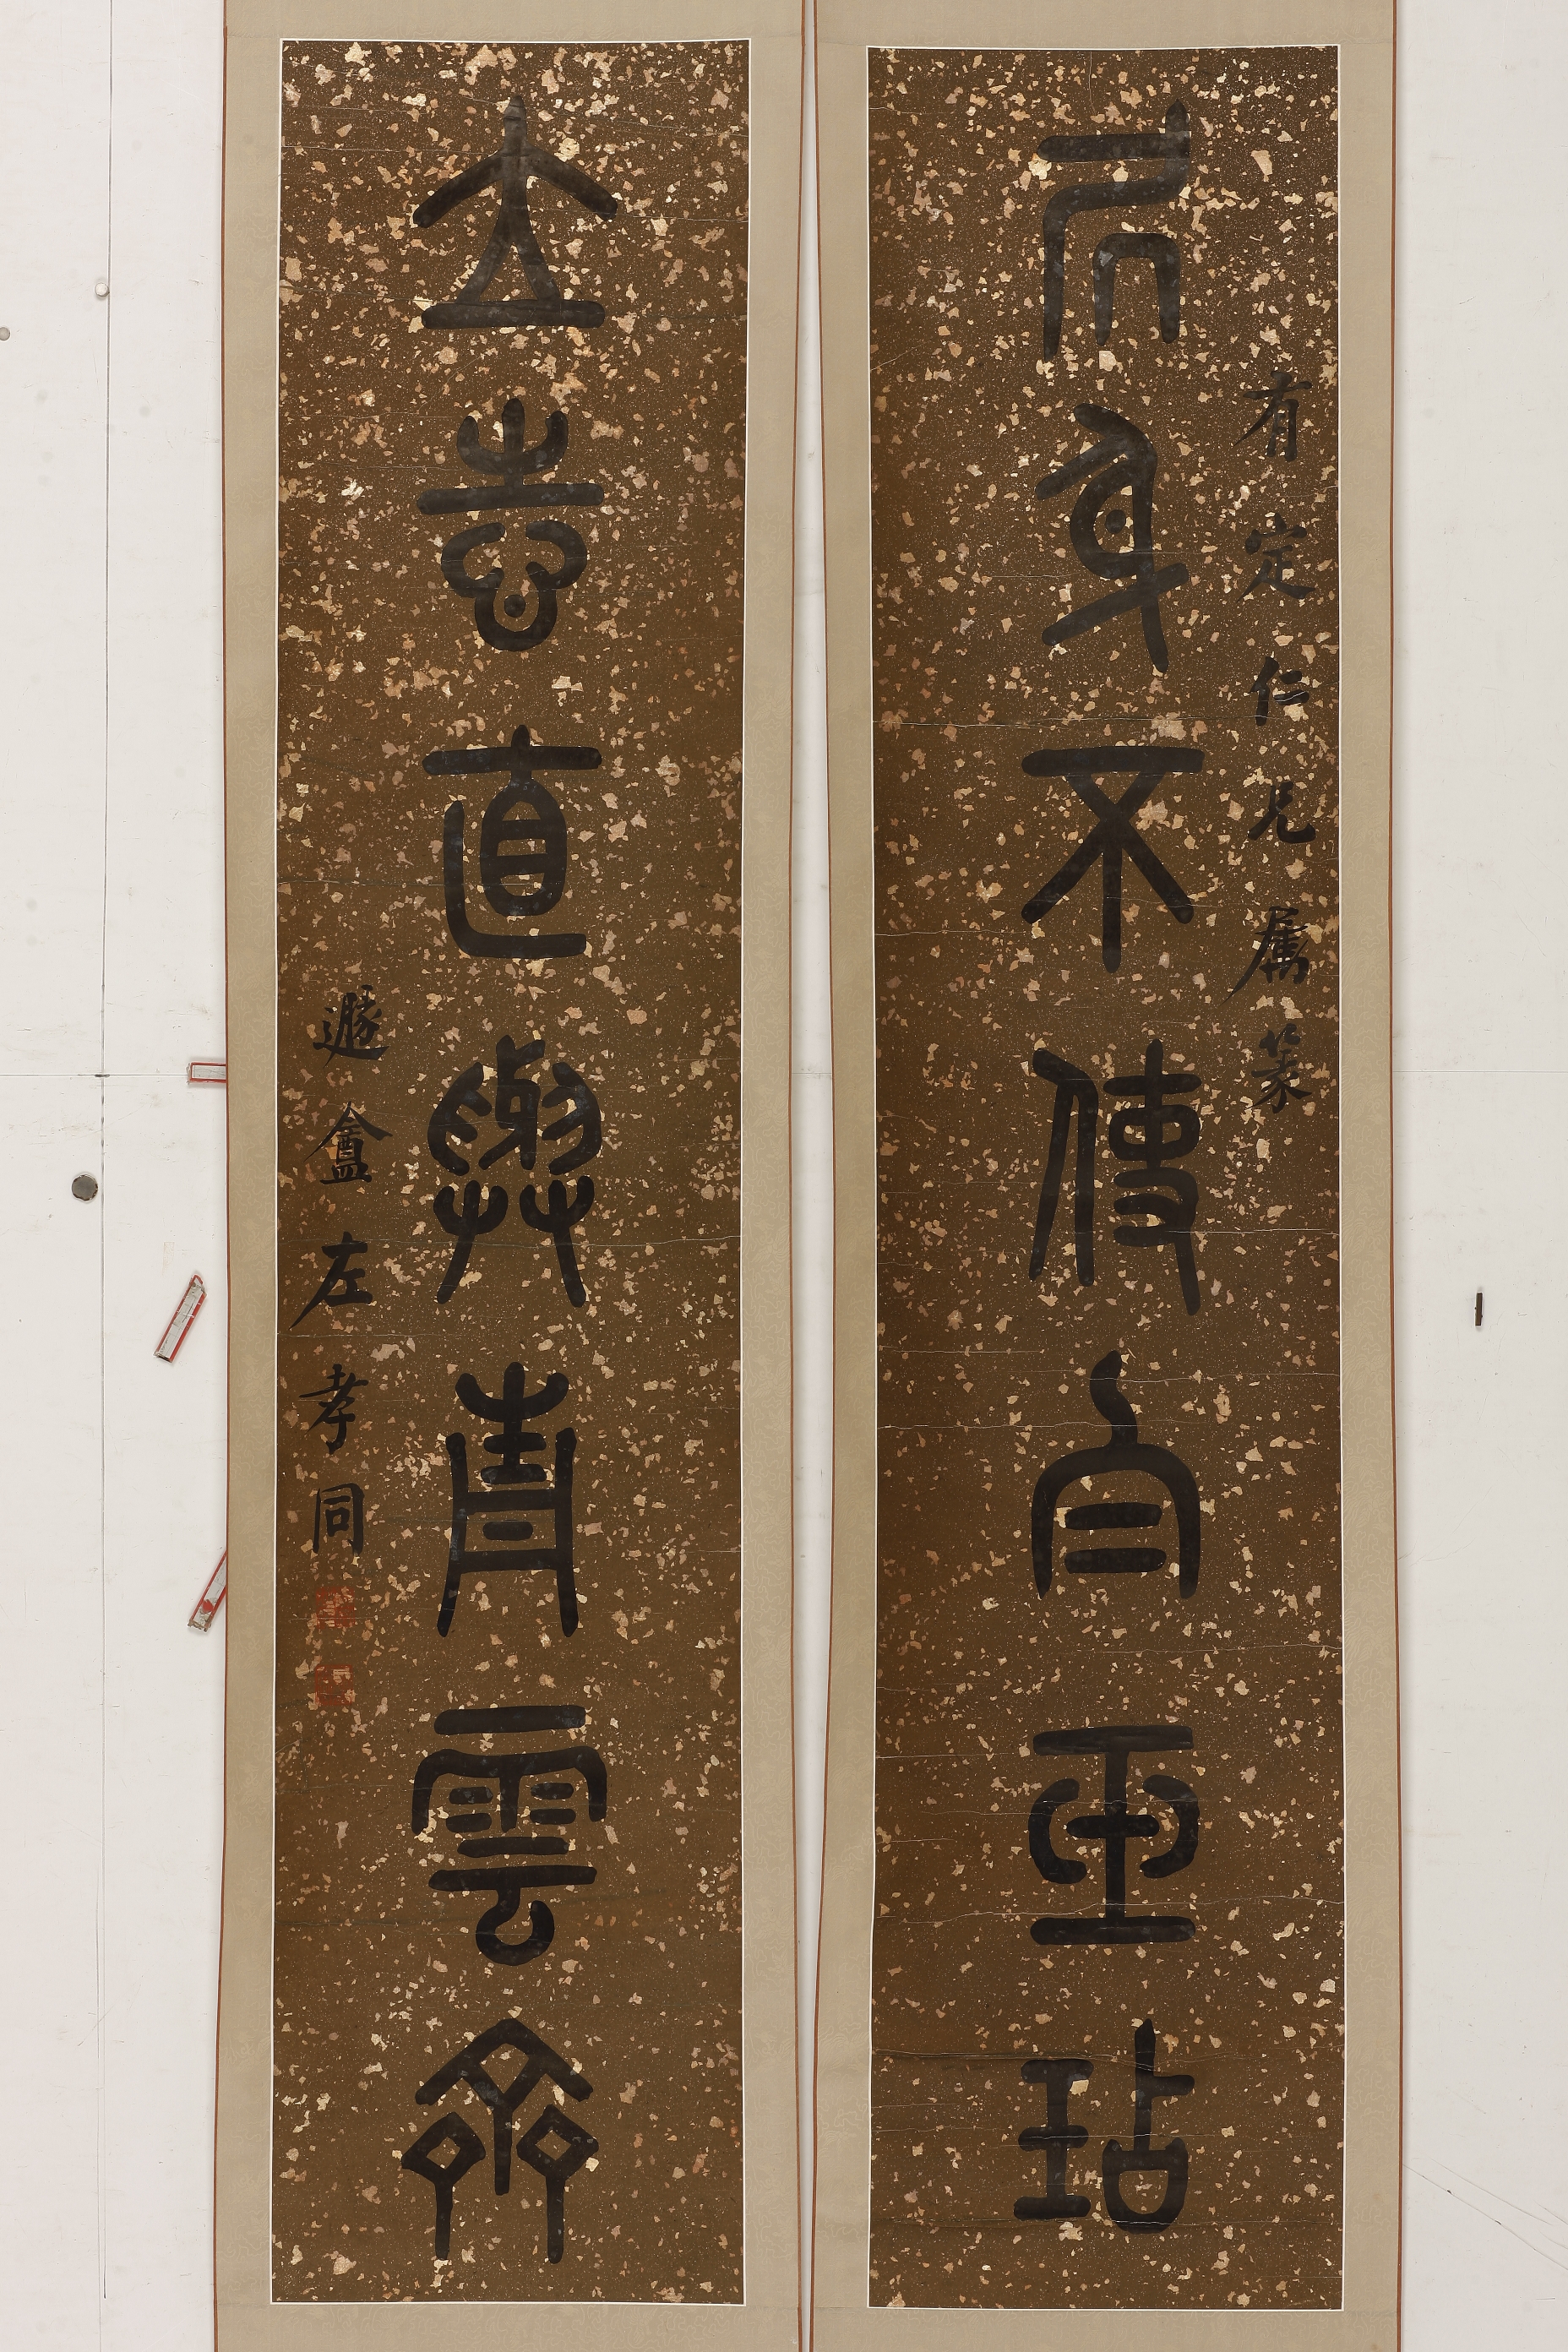 有定仁兄屬篆
身不使白玷
立志直與青雲齊
遯盦左孝同